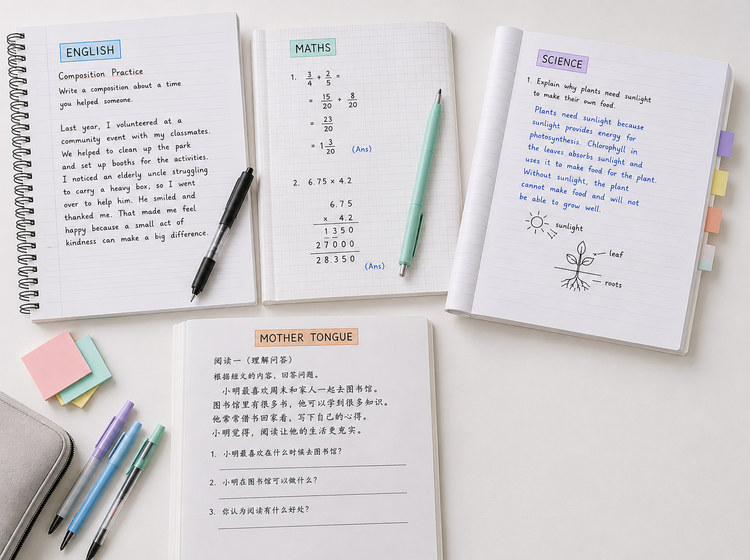 ENGLISH
Composition Practice
Write a composition about a time
you helped someone.
Last year, I volunteered at a
community event with my classmates.
We helped to clean up the park
and set up booths for the activities.
I noticed an elderly uncle struggling
to carry a heavy box, so I went
over to help him. He smiled and
thanked me. That made me feel
happy because a small act of
kindness can make a big difference.
MATHS
1. 3/4 + 2/5 =
= 15/20 + 8/20
= 23/20
= 1 3/20 (Ans)
2. 6.75 × 4.2
6.75
× 4.2
1350
27000
28.350
(Ans)
SCIENCE
1. Explain why plants need sunlight
to make their own food.
Plants need sunlight because
sunlight provides energy for
photosynthesis. Chlorophyll in
the leaves absorbs sunlight and
uses it to make food for the plant.
Without sunlight, the plant
cannot make food and will not
be able to grow well.
sunlight
leaf
roots
MOTHER TONGUE
阅读一（理解问答）
根据短文的内容，回答问题。
小明最喜欢周末和家人一起去图书馆。
图书馆里有很多书，他可以学到很多知识。
他常常借书回家看，写下自己的心得。
小明觉得，阅读让他的生活更充实。
1. 小明最喜欢在什么时候去图书馆？
2. 小明在图书馆可以做什么？
3. 你认为阅读有什么好处？